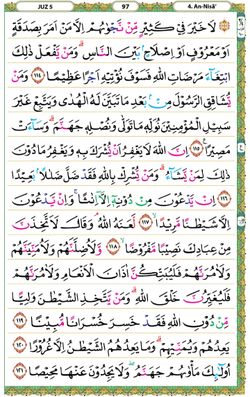 JUZ 5 97 4. An-Nisā'
لَا خَيْرَ فِي كَثِيرٍ مِّن نَّجْوٰىهُمْ اِلَّا مَنْ اَمَرَ بِصَدَقَةٍ
اَوْ مَعْرُوْفٍ اَوْ اِصْلَاحٍۢ بَيْنَ النَّاسِۗ وَمَنْ يَّفْعَلْ ذٰلِكَ
ابْتِغَاۤءَ مَرْضَاتِ اللّٰهِ فَسَوْفَ نُؤْتِيْهِ اَجْرًا عَظِيْمًا ١١٤ وَمَنْ
يُّشَاقِقِ الرَّسُوْلَ مِنْۢ بَعْدِ مَا تَبَيَّنَ لَهُ الْهُدٰى وَيَتَّبِعْ غَيْرَ
سَبِيْلِ الْمُؤْمِنِيْنَ نُوَلِّهٖ مَا تَوَلّٰى وَنُصْلِهٖ جَهَنَّمَۗ وَسَاۤءَتْ
مَصِيْرًا ١١٥ اِنَّ اللّٰهَ لَا يَغْفِرُ اَنْ يُّشْرَكَ بِهٖ وَيَغْفِرُ مَا دُوْنَ
ذٰلِكَ لِمَنْ يَّشَاۤءُۗ وَمَنْ يُّشْرِكْ بِاللّٰهِ فَقَدْ ضَلَّ ضَلٰلًاۢ بَعِيْدًا
١١٦ اِنْ يَّدْعُوْنَ مِنْ دُوْنِهٖٓ اِلَّآ اِنٰثًاۚ وَاِنْ يَّدْعُوْنَ
اِلَّا شَيْطٰنًا مَّرِيْدًا ١١٧ لَّعَنَهُ اللّٰهُۘ وَقَالَ لَاَتَّخِذَنَّ
مِنْ عِبَادِكَ نَصِيْبًا مَّفْرُوْضًا ١١٨ وَّلَاُضِلَّنَّهُمْ وَلَاُمَنِّيَنَّهُمْ
وَلَاٰمُرَنَّهُمْ فَلَيُبَتِّكُنَّ اٰذَانَ الْاَنْعَامِ وَلَاٰمُرَنَّهُمْ
فَلَيُغَيِّرُنَّ خَلْقَ اللّٰهِۗ وَمَنْ يَّتَّخِذِ الشَّيْطٰنَ وَلِيًّا
مِّنْ دُوْنِ اللّٰهِ فَقَدْ خَسِرَ خُسْرَانًا مُّبِيْنًا ١١٩
يَعِدُهُمْ وَيُمَنِّيْهِمْۗ وَمَا يَعِدُهُمُ الشَّيْطٰنُ اِلَّا غُرُوْرًا ١٢٠
اُولٰۤىِٕكَ مَأْوٰىهُمْ جَهَنَّمُۖ وَلَا يَجِدُوْنَ عَنْهَا مَحِيْصًا ١٢١